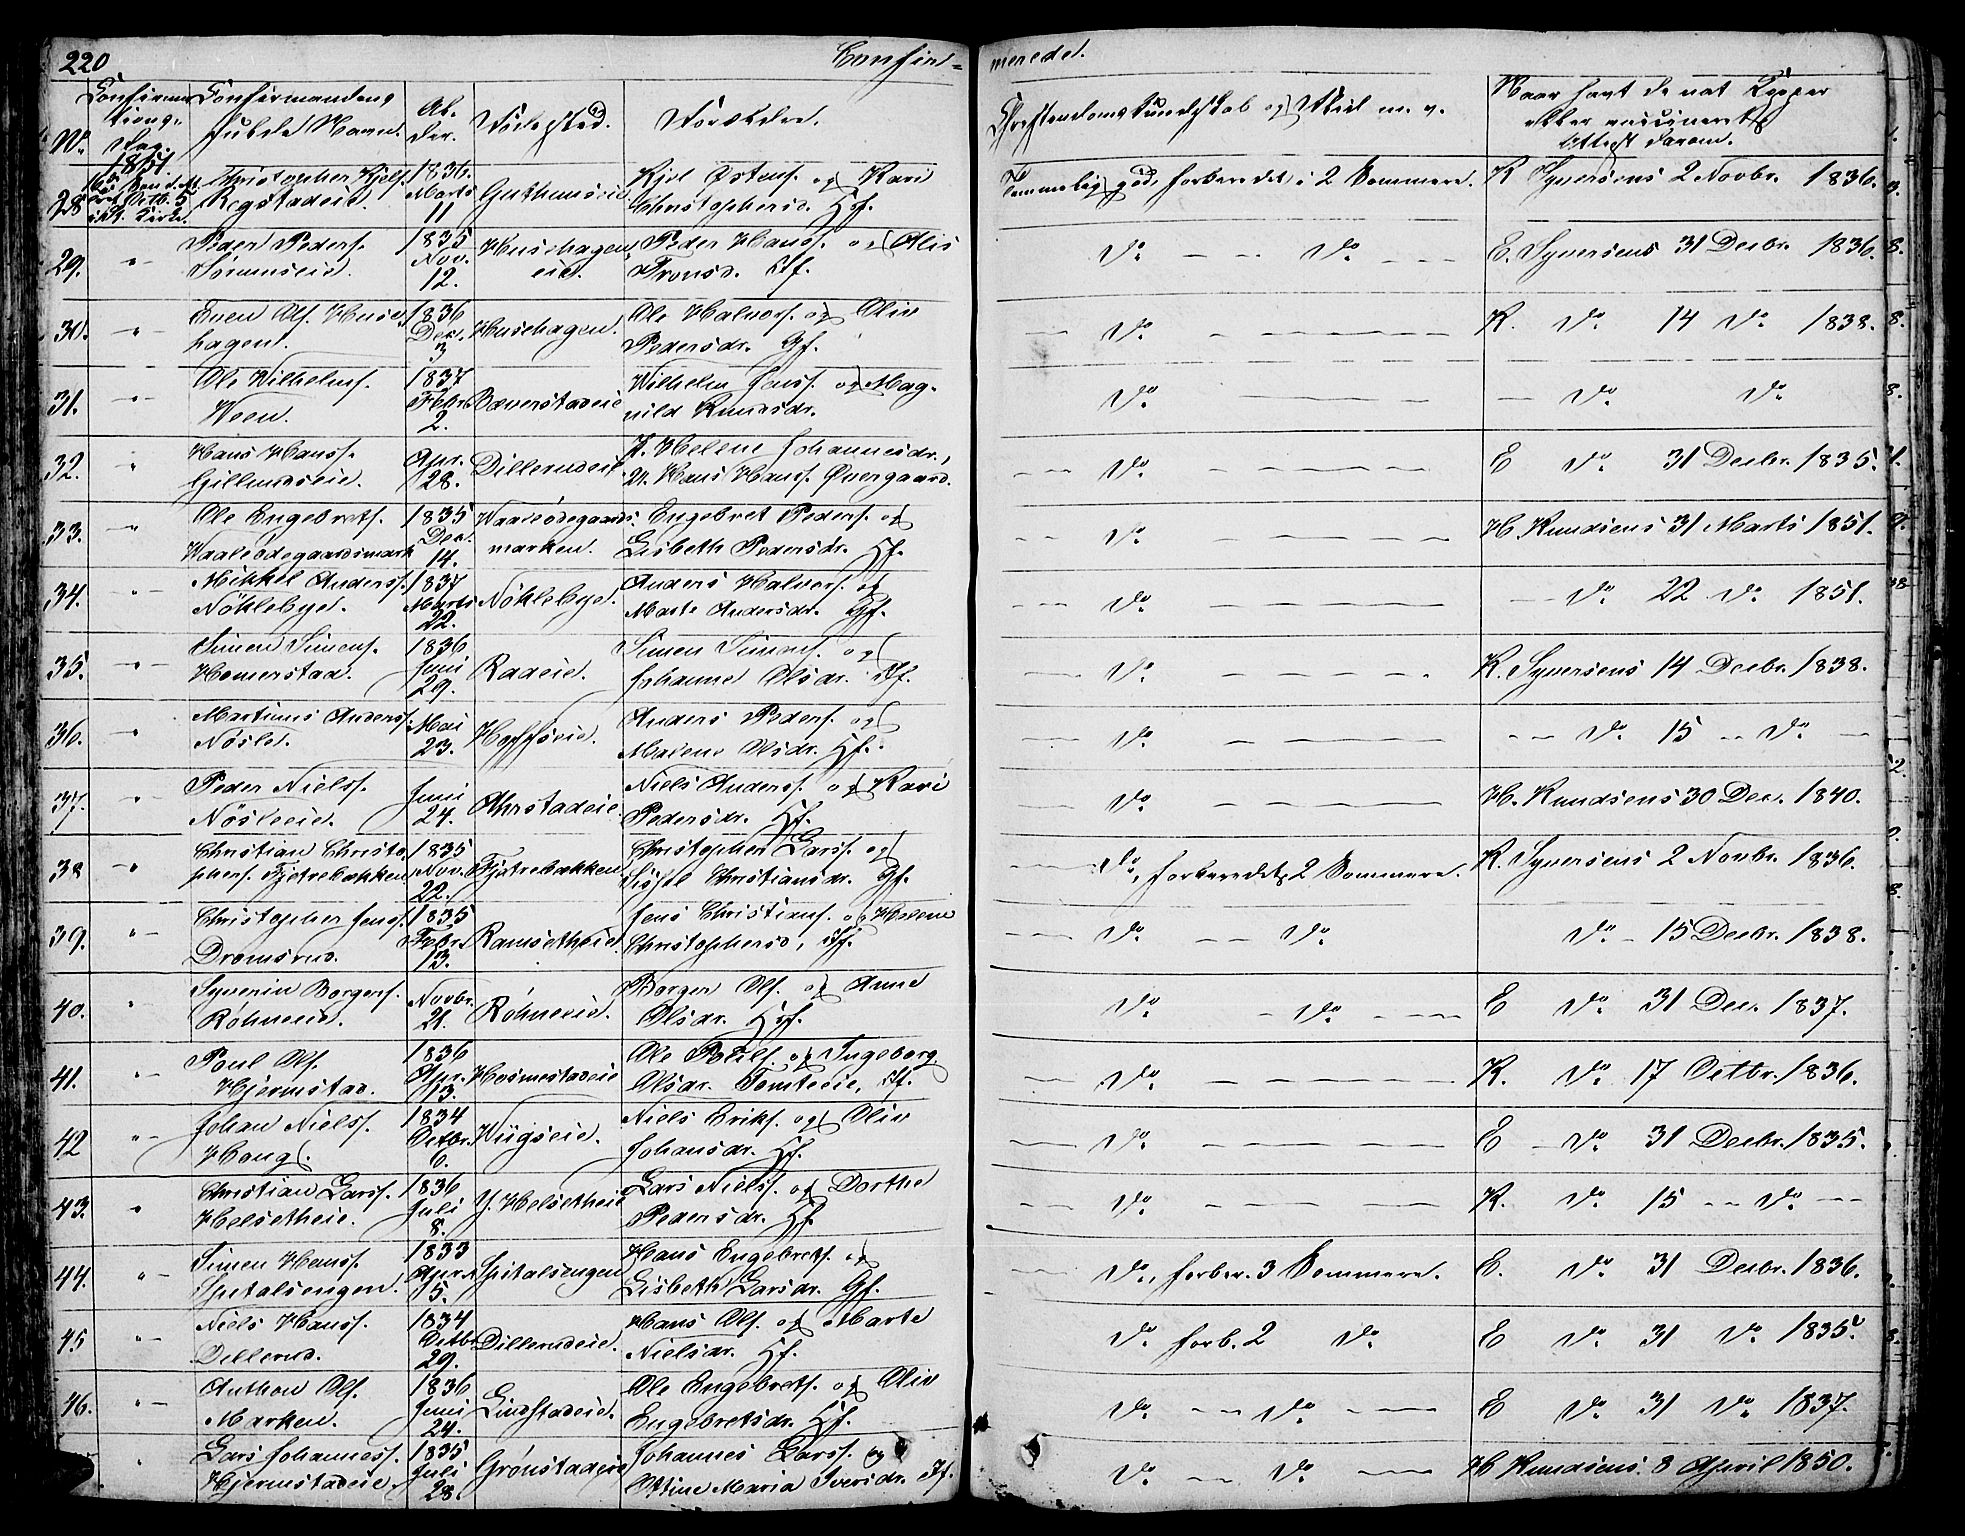 220
Confir-
merede.
No.
Confirma-
tions-
Dag.
Confirmandens
fulde Navn.
Al-
der.
Fødested.
Forældre.
Christendomskundskab og Flid m. v.
Naar havt de nat. Kopper
eller vaccineret
Attest derom.
28
1851
Christopher Kjels.
Rogstadeie.
1836.
Marts
11
Guthumseie
Kjel Østens. og Kari
Christophersd. Hf.
Temmelig god, forberedet i 2 Sommere.
K Syversens 2 Novbr. 1836.
29.
Peder Peders.
Sørumseie.
1835
Nov.
12.
Husehagen
eie.
Peder Hanss. og Olis
Tronsd. If.
Do Do
E. Syversens 31 Decbr. 1836.
30.
Even Ols. Huse-
hagen.
1836
Dec.
3
Husehagen.
Ole Halvors. og Oliv
Pedersdr. Gf.
Do
K. Do. 14 Do. 1838.
31.
Ole Wilhelms.
Veen.
1837
Febr.
2.
Baverstadeie
Wilhelm Jenss. og Mag-
nild Knudsdr.
Do.
Do. Do.
32.
Hans Hanss.
Gillundseie.
Apr.
28.
Dillerudeie
P. Helene Johannesdr.,
U. Hans Hanss. Øvergaard.
Do.
E Do. 31 Decbr. 1835.
33.
Ole Engebrets.
Vaaleødegaardsmark
1835
Dec.
14.
Vaaleødegaards-
marken.
Engebret Peders. og
Lisbeth Pedersdr. Hf.
Do.
H. Knudsens 31 Marts 1851.
34.
Mikkel Anderss.
Nøklebye.
1837
Marts
22.
Nøklebye.
Anders Halvors. og
Marte Andersdr. Gf.
Do.
Do. 22 Do. 1851.
35.
Simen Simens.
Homerstad.
1836
Juni
29.
Raaeie.
Simen Simens. og
Johanne Olsdr. If.
Do.
K. Syversens 14 Decbr. 1838.
36.
Martinus Anderss.
Nøsle.
Mai
23.
Hoffseie.
Anders Peders. og
Malene Olsdr. Hf.
Do.
Do. 15 Do.
37.
Peder Nielss.
Nøsleeie.
Juni
24.
Ahrstadeie.
Niels Anderss. og Kari
Pedersdr. Hf.
Do.
H. Knudsens 30 Dec. 1840.
38
Christian Christo-
phers. Fjetrebækken
1835
Nov.
22.
Fjetrebækken
Christopher Larss. og
Sissel Christiansdr. Gf.
Do, forberedet 2 Sommere.
K. Syversens 2 Novbr. 1836.
39.
Christopher Jenss.
Dromsrud.
1835
Febr.
13.
Ramsetheie.
Jens Christians. og Helene
Christophersd, If.
Do. Do.
Do. 15 Decbr. 1838.
40.
Syverin Borgers.
Rohneeie.
Novbr.
21.
Rohneeie.
Borger Ols. og Anne
Olsdr. Hf.
Do. Do.
E Do. 31 Dec. 1837.
41.
Poul Ols.
Hjermstad.
1836
Apr.
13.
Hosmestadeie
Ole Pouls. og Ingeborg
Olsdr. Tomteeie, If.
Do.
K. Do. 17 Octbr. 1836.
42
Johan Nielss.
Haug.
1834
Octbr.
6.
Viigseie.
Niels Eriks. og Oliv
Johansdr. Hf.
Do.
E Do 31 Decbr. 1835.
43.
Christian Larss.
Helsetheie.
1836
Juli
8.
Y. Helsetheie
Lars Nielss. og Dorthe
Pedersdr. Hf.
Do.
K. Do. 15 Do.
44.
Simen Hanss.
Spitalsengen.
1833
Apr.
15.
Spitalsengen
Hans Engebrets. og
Lisbeth Larsdr. Gf.
Do., forber. 3 Sommere.
E. Do. 31 Decbr. 1836.
45
Niels Hanss.
Dillerud.
1834
Octbr.
29.
Dillerudeie.
Hans Ols. og Marte
Nielsdr. Hf.
Do. forb. 2 Do.
E Do. 31 Do. 1835.
46.
Anthon Ols.
Marken.
1836
Juni
24.
Lindstadeie.
Ole Engebrets. og Oliv
Engebretsdr. Hf.
Do. Do.
E Do. 31 Do. 1837.
Lars Johanness.
Hjermstadeie.
1835
Juli
28.
Grønstadeie
Johannes Larss. og
Oline Maria Iversdr. If.
Do. Do.
H Knudsens 8 April 1850.